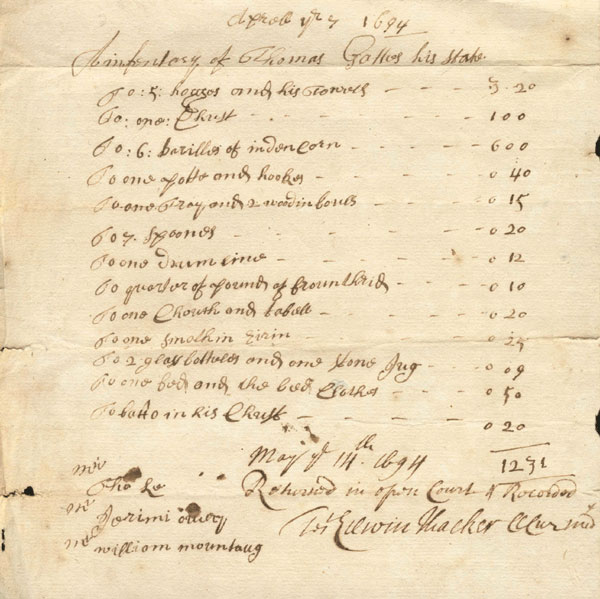 Aprell yᵉ 7 1694
A infentary of Thomas Gattes his state
To: 5: hogges and his towells - - - 3 - 20
To: one: Chust - - - - 100
To: 6: barilles of inden Corn - - - 600
To one potte and hookes - - - - 0 40
To one tray and 2 woodin boules - - - 0 15
to 7 spoones - - - - 0 20
to one drum line - - - - 0 12
To quarter of a pound of broun thrid - 0 10
To one and tabell - - - 0 20
To one smothin eirin - - - 0 25
To 2 glas botteles and one stone Jug - - 0 09
to one bed and the bed Clothes - - 0 50
To in his Chust - - - - 0 20
1231
May yᵉ 14th 1694
Returned in open Court & Recorded
Tes Edwin Thacker Cl Cur
Tho Le
Jerimi
william mountaug